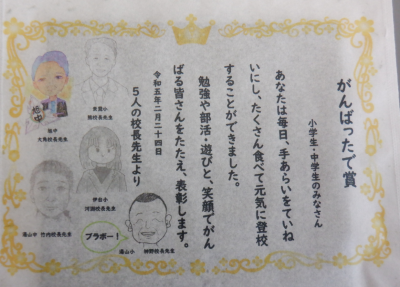 がんばったで賞
小学生・中学生のみなさん
あなたは毎日、手あらいをていね
いにし、たくさん食べて元気に登校
することができました。
勉強や部活・遊びと、笑顔でがん
ばる皆さんをたたえ、表彰します。
令和五年二月二十四日
5人の校長先生より
校長先生
校長先生
伊自小
校長先生
竹内校長先生
ブラボー！
校長先生